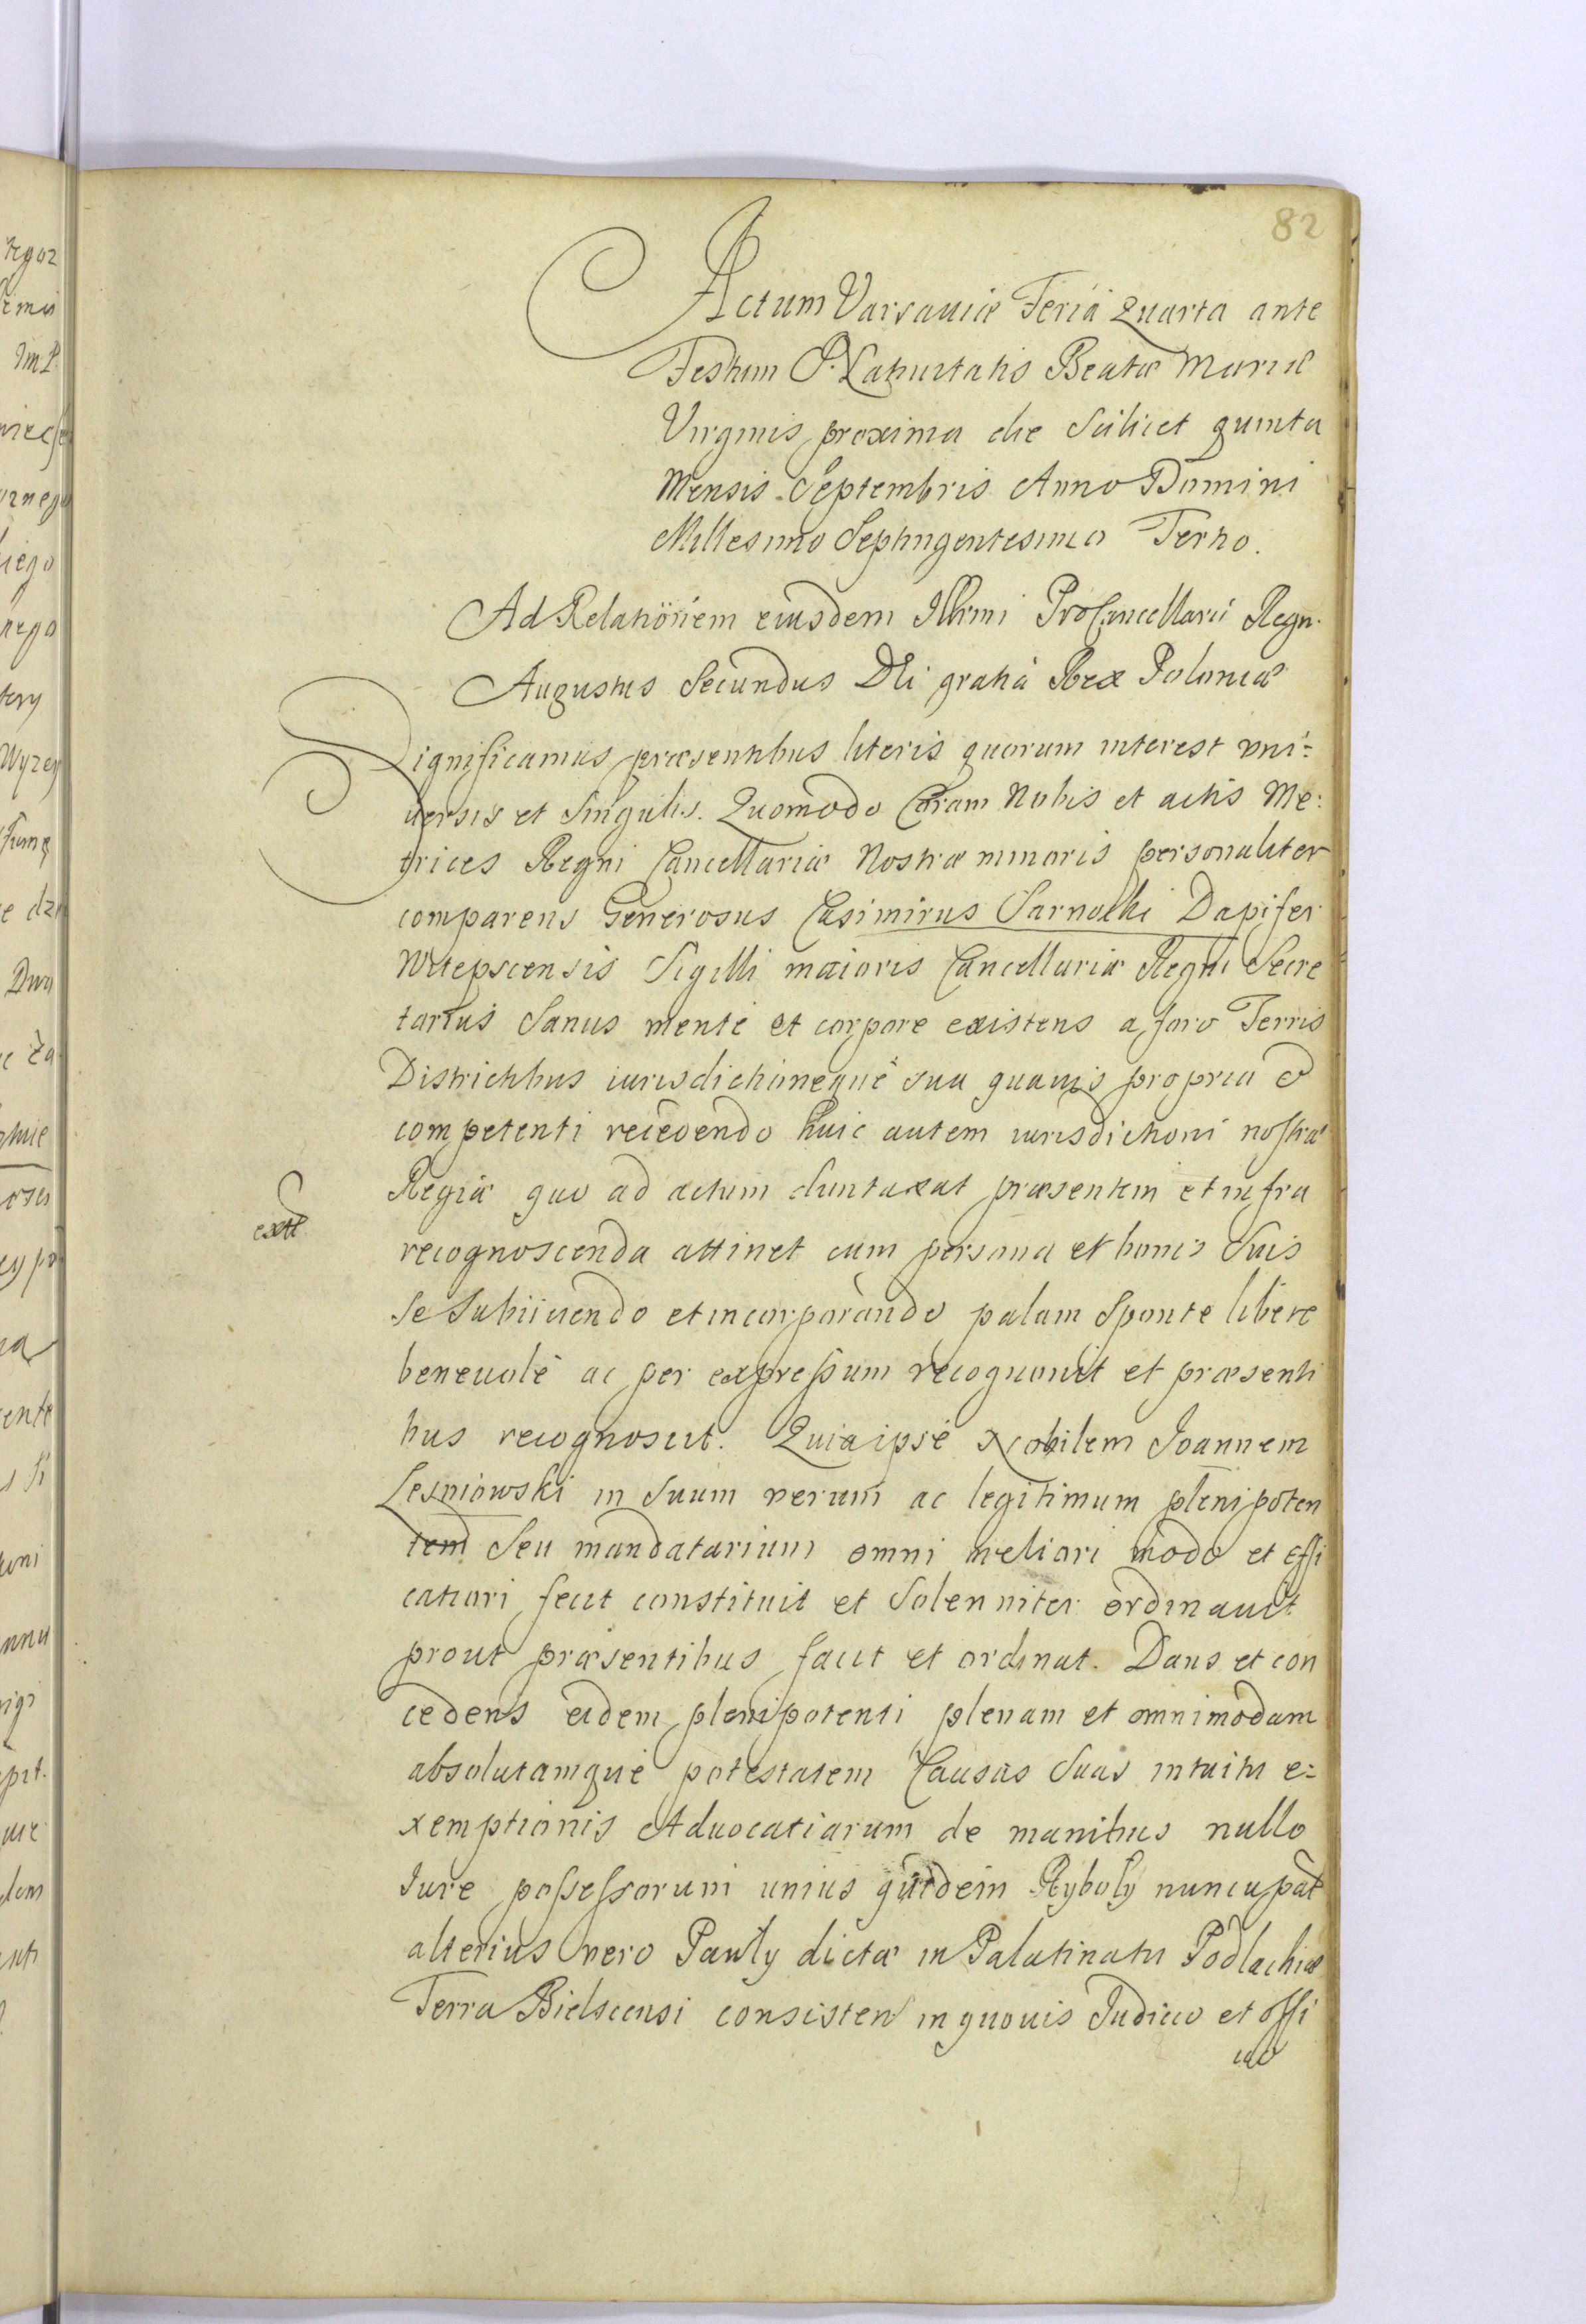 82
Actum Varsauiæ Feriâ Quarta ante
Festum Natiuitatis Beatæ Mariæ
Virginis proxima die Scilicet quinta
Mensis Septembris Anno Domini
Millesimo Septingentesimo Tertio.
Ad Relationem eiusdem Illrmi ProCancellarii Regn.
Augustus Secundus Dei gratiâ Rex Poloniæ
Significamus præsentibus literis quorum interest vni:
uersis et Singulis. Quomodo Coram Nobis et actis Me:
trices Regni Cancellariæ Nostræ minoris personaliter
comparens Generosus Casimirus Sarnacki Dapifer
Witepscensis Sigilli maioris Cancellariæ Regni Secre
tarius Sanus mente et corpore existens a foro Terris
Districtibus iurisdictioneque sua quauis propria &
competenti recedendo huic autem iurisdictioni nostræ
Regiæ quo ad actum duntaxat præsentem et infra
recognoscenda attinet cum persona et bonis Suis
Se Subiiciendo et incorporando palam Sponte libere
beneuolè ac per expressum recognouit et præsenti
bus recognoscit. Quia ipse Nobilem Joannem
Lesniowski in Suum verum ac legitimum plenipoten
tem Seu mandatarium omni meliori modo et effi
catiori fecit constituit et Solenniter ordinauit
prout præsentibus facit et ordinat. Dans et con
cedens eidem plenipotenti plenam et omnimodam
absolutamque potestatem Causas Suas intuitu e:
xemptionis Aduocatiarum de manibus nullo
Jure possessorum unius quidem Ryboly nuncupat
alterius vero Pauly dictæ in Palatinatu Podlachiæ
Terra Bielscensi consisten in quouis Judicio et offi
cio
extt